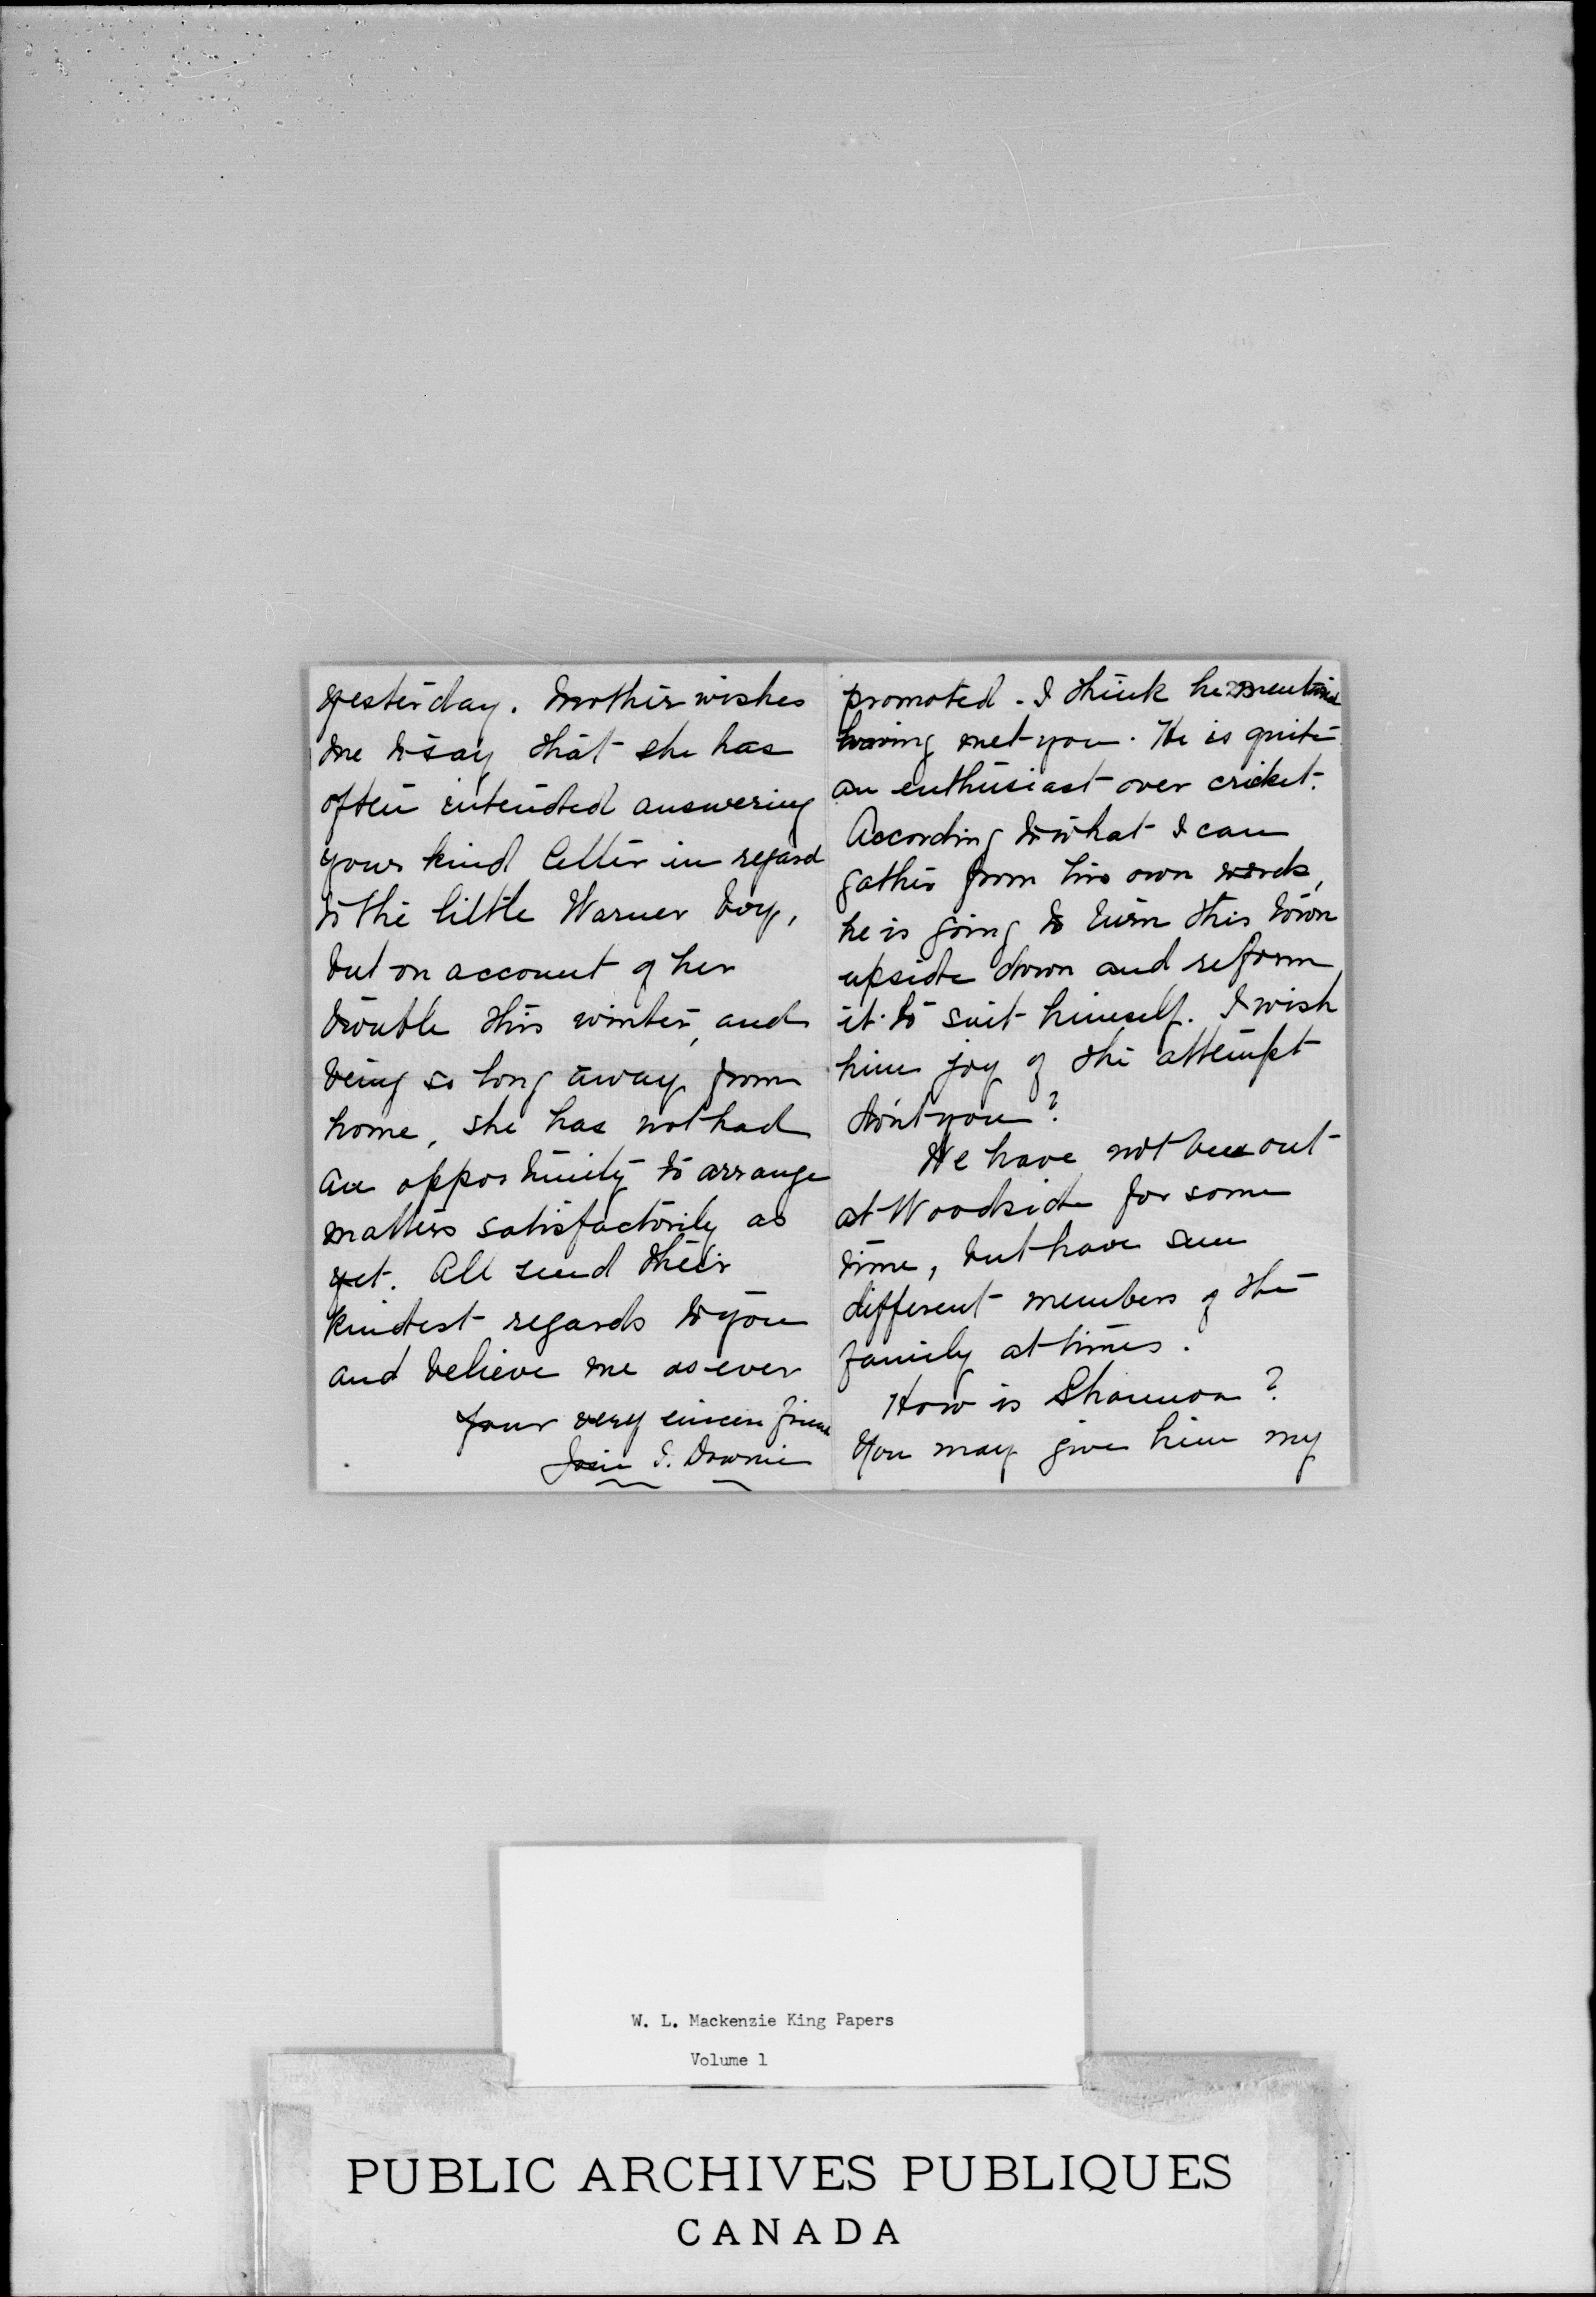 yesterday. Mother wishes
me to say that she has
often intended answering
your kind letter in regard
to the little Warner boy,
but on account of her
trouble this winter, and
being so long away from
home, she has not had
an opportunity to arrange
matters satisfactorily as
yet. All send their
kindest regards to you
and believe me as ever
your very sincere friend
Josie I. Downie
promoted. I think he mentioned
having met you. He is quite
an enthusiast over cricket.
According to what I can
gather from his own words,
he is going to turn this town
upside down and reform
it to suit himself. I wish
him joy of the attempt
don't you?
We have not been out
at Woodside for some
time, but have seen
different members of the
family at times.
How is Shannon?
You may give him my
W. L. Mackenzie King Papers
Volume 1
PUBLIC ARCHIVES PUBLIQUES
CANADA